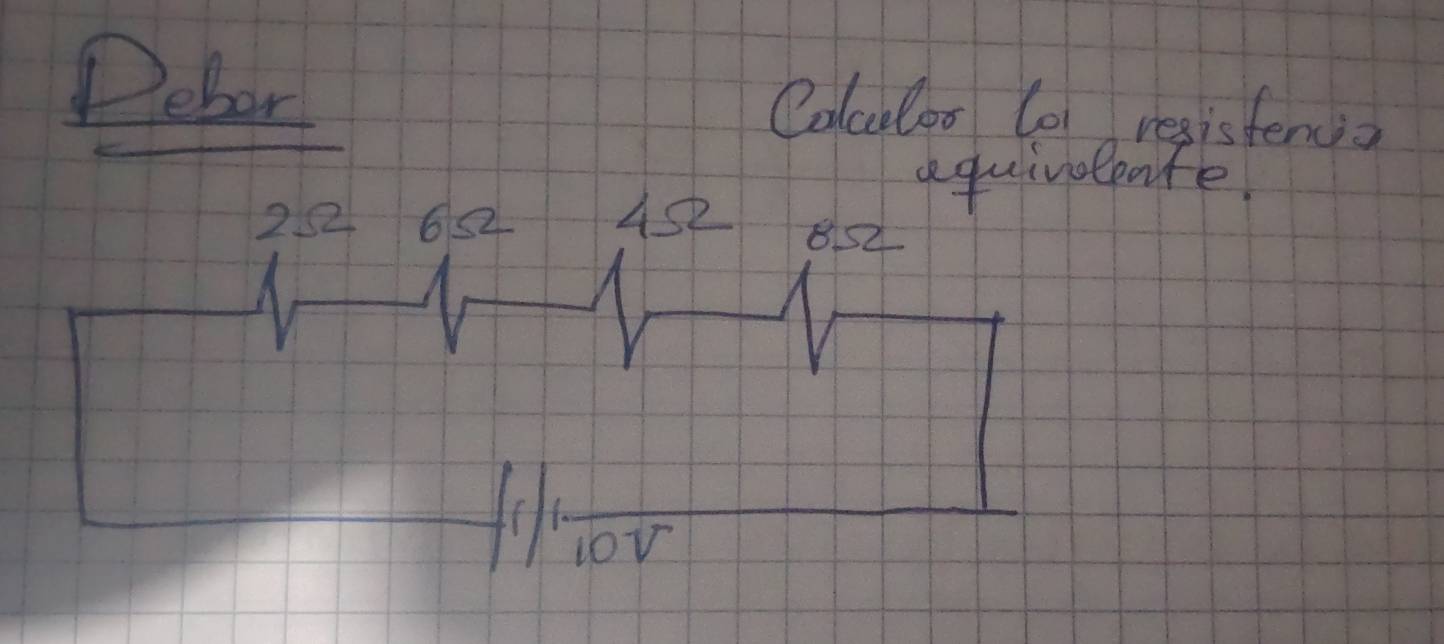 Deber
Calcular la resistencia
equivalente.
2Ω 6Ω 4Ω 8Ω
10V